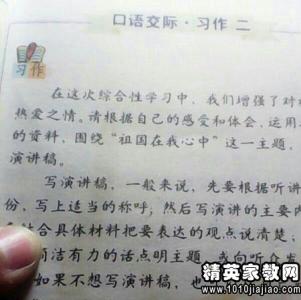 口语交际·习作 二
习作
在这次综合性学习中,我们增强了对
热爱之情。请根据自己的感受和体会,运用
的资料,围绕“祖国在我心中”这一主题,
演讲稿。
写演讲稿,一般来说,先要根据听讲
份,写上适当的称呼;然后写演讲的主要内
结合具体材料把要表达的观点说清楚,
简洁有力的话点明主题,或向听众发
如果不想写演讲稿,也
精英家教网
www.1010jiajiao.com